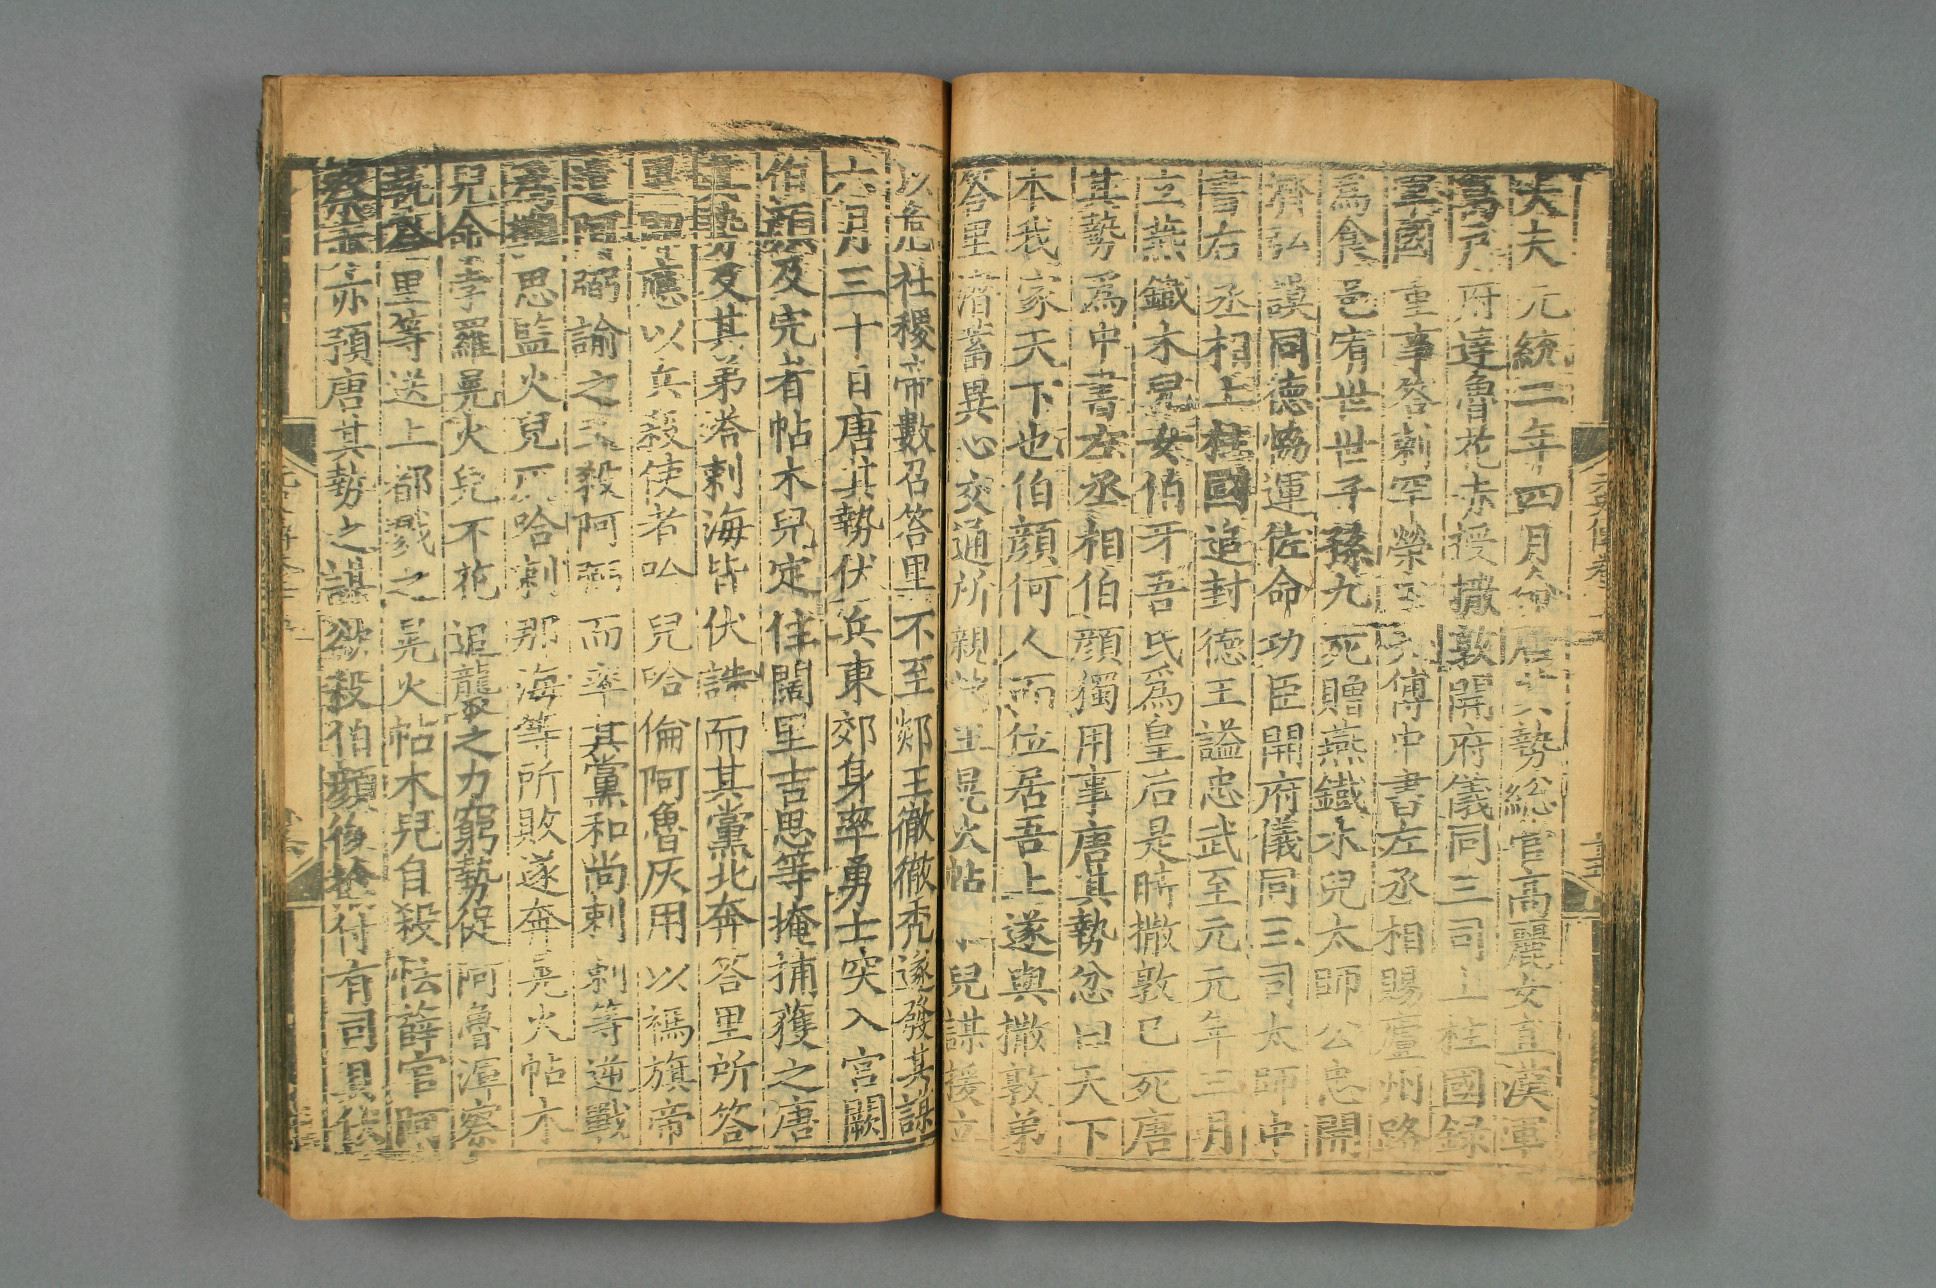 大夫元統二年四月命唐其勢總管高麗女直漢軍
萬戶府達魯花赤授撒敦開府儀同三司上柱國録
軍國重事答剌罕榮王太傅中書左丞相賜廬州路
爲食邑宥世世子孫九死贈燕鐵木兒太師公忠開
濟弘謨同德協運佐命功臣開府儀同三司太師中
書右丞相上柱國追封德王謚忠武至元元年三月
立燕鐵木兒女伯牙吾氏爲皇后是時撒敦已死唐
其勢爲中書左丞相伯顔獨用事唐其勢忿曰天下
本我家天下也伯顔何人而位居吾上遂與撒敦弟
答里潛蓄異心交通所親諸王晃火帖木兒謀援立
以危社稷帝數召答里不至郯王徹徹禿遂發其謀
六月三十日唐其勢伏兵東郊身率勇士突入宮闕
伯顔及完者帖木兒定住闊里吉思等掩捕獲之唐
其勢及其弟塔剌海皆伏誅而其黨北奔答里所答
里即應以兵殺使者哈兒哈倫阿魯灰用以禡旗帝
遣阿弼諭之又殺阿弼而率其黨和尚剌剌等逆戰
爲搠思監火兒灰哈剌那海等所敗遂奔晃火帖木
兒命孛羅晃火兒不花追襲之力窮勢促阿魯渾察
執答里等送上都戮之晃火帖木兒自殺怯薛官阿
察赤亦預唐其勢之謀欲殺伯顔後擒付有司具伏